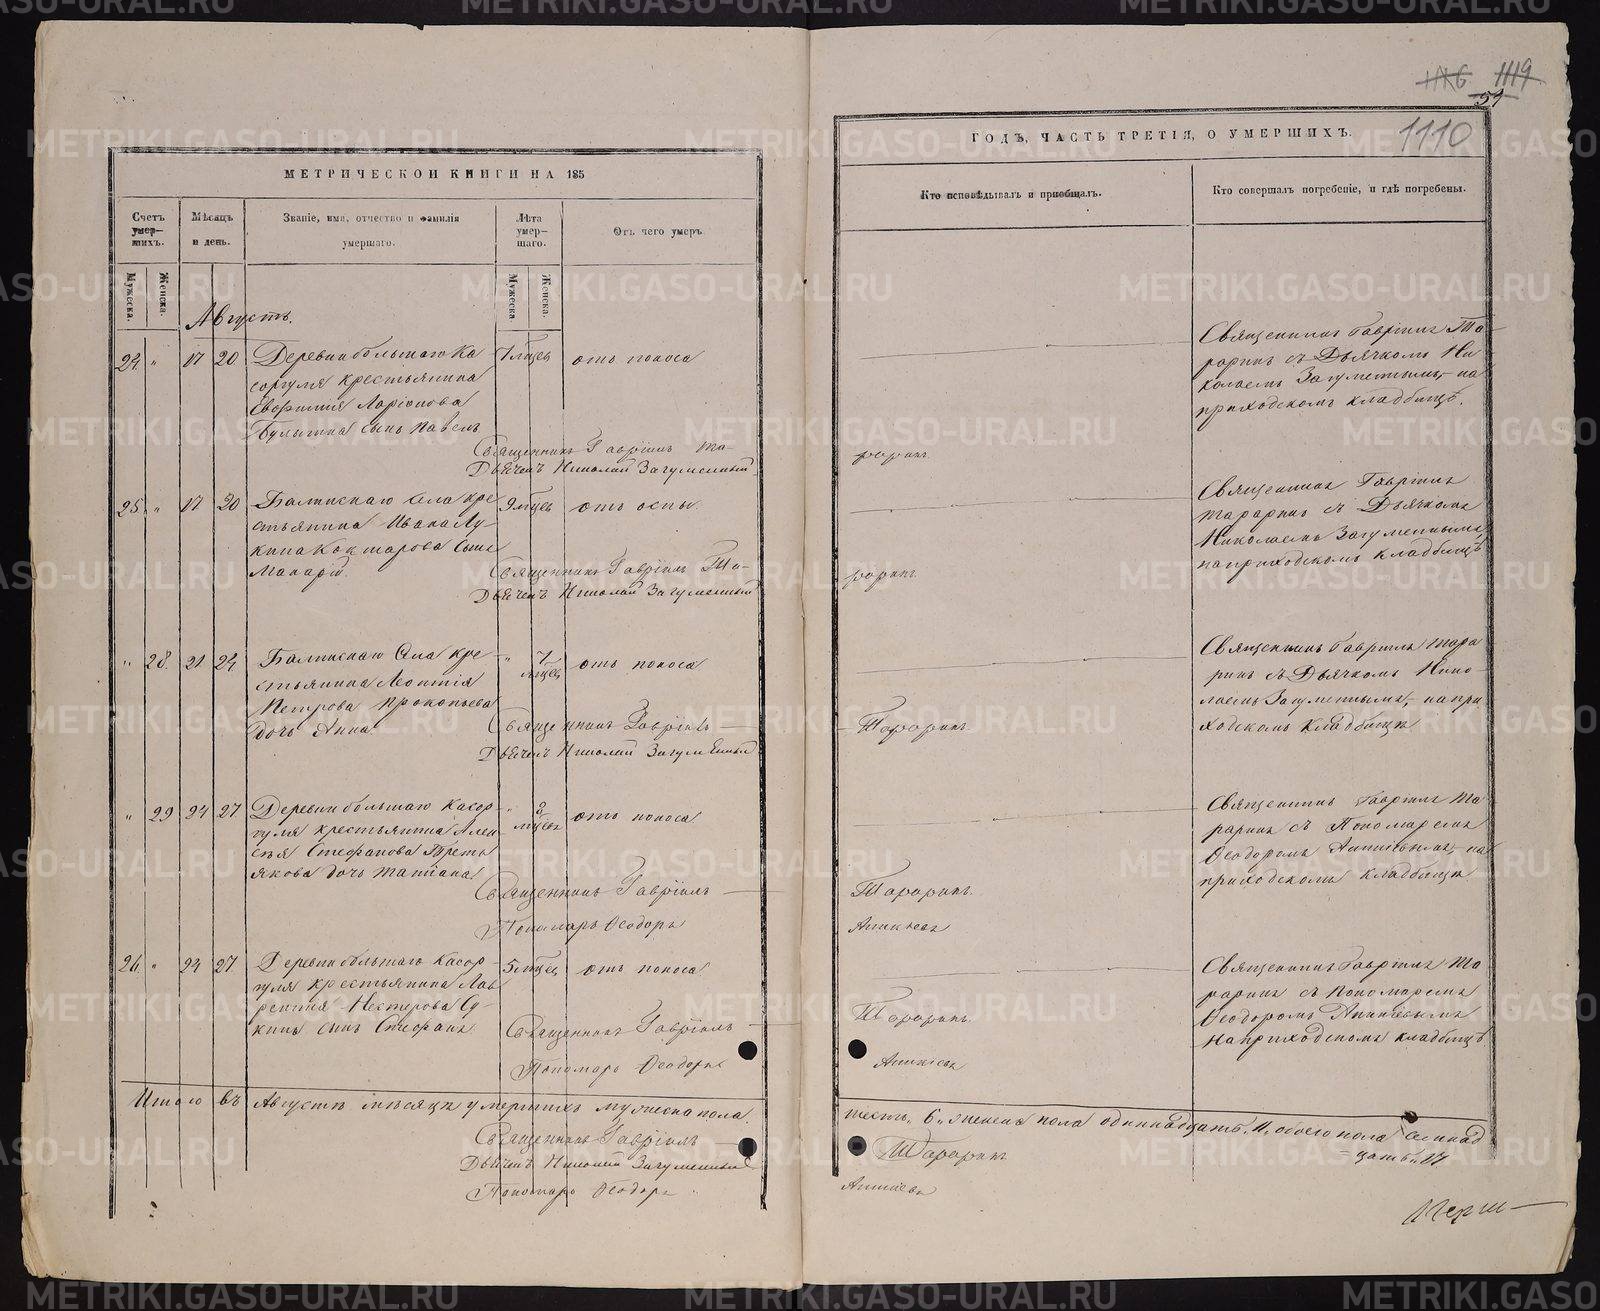 1116 1119
51
1110
МЕТРИЧЕСКОЙ КНИГИ НА 185
Счетъ умер-
шихъ.
Мѣсяцъ
и день.
Званіе, имя, отчество и фамилія
умершаго.
Лѣта
умер-
шаго.
Отъ чего умеръ
Мужеска.
Женска.
Мужеска
Женска.
Августъ.
24. " 17 20 Деревни большаго Ка- 7 мѣцев отъ поноса
саргуля крестьянина
Евфимія Ларіонова
Булыгина сынъ Павелъ
Священникъ Гавріилъ Та-
Дьячекъ Николай Загуменный
25. " 17 20 Багаряскаго села кре- 9 мѣцев отъ оспы
стьянина Ивана Лу-
кина Кокшарова сынъ
Макарій.
Священникъ Гавріилъ Та-
Дьячекъ Николай Загуменный
" 28. 21 24 села кре- " 7 мѣцев отъ поноса
стьянина Леонтія
Петрова Прокопьева
дочь Анна
Священникъ Гавріилъ
Дьячекъ Николай Загуменный
" 29 24 27 Деревни большаго Касар- " 2 мѣцев отъ поноса
гуля крестьянина Алек
сѣя Стефанова Треть
якова дочь Татіана
Священникъ Гавріилъ
Пономарь Ѳеодоръ
26. " 24 27 Деревни большаго Касар- 5 мѣцев отъ поноса
гуля крестьянина Лав
рентія Нестерова Су-
кина сынъ Стефанъ
Священникъ Гавріилъ
Пономарь Ѳеодоръ
Итого въ Августѣ мѣсяцѣ умершихъ мужеска пола
Священникъ Гавріилъ
Дьячекъ Николай Загуменный
Пономарь Ѳеодоръ
ГОДЪ, ЧАСТЬ ТРЕТІЯ, О УМЕРШИХЪ.
Кто исповѣдывалъ и пріобщалъ.
Кто совершалъ погребеніе, и гдѣ погребены.
Священникъ Гавріилъ Та-
раринъ съ Дьячкомъ Ни-
колаемъ Загуменнымъ, на
приходскомъ кладбищѣ.
раринъ.
Священникъ Гавріилъ
Тараринъ съ Дьячкомъ
Николаемъ Загуменнымъ,
на приходскомъ кладбищѣ
раринъ.
Священникъ Гавріилъ Тара
ринъ съ Дьячкомъ Нико-
лаемъ Загуменнымъ, на при
ходскомъ кладбищѣ
Тараринъ.
Священникъ Гавріилъ Та-
раринъ съ Пономаремъ
Ѳеодоромъ Аникіевымъ, на
приходскомъ кладбищѣ
Тараринъ.
Аникіевъ
Священникъ Гавріилъ Та-
раринъ съ Пономаремъ
Ѳеодоромъ Аникіевымъ
на приходскомъ кладбищѣ
Тараринъ.
Аникіевъ
шесть, 6, женска пола одиннадцать, 11, обоего пола семнад
цать, 17
Тараринъ
Аникіевъ
METRIKI.GASO-URAL.RU